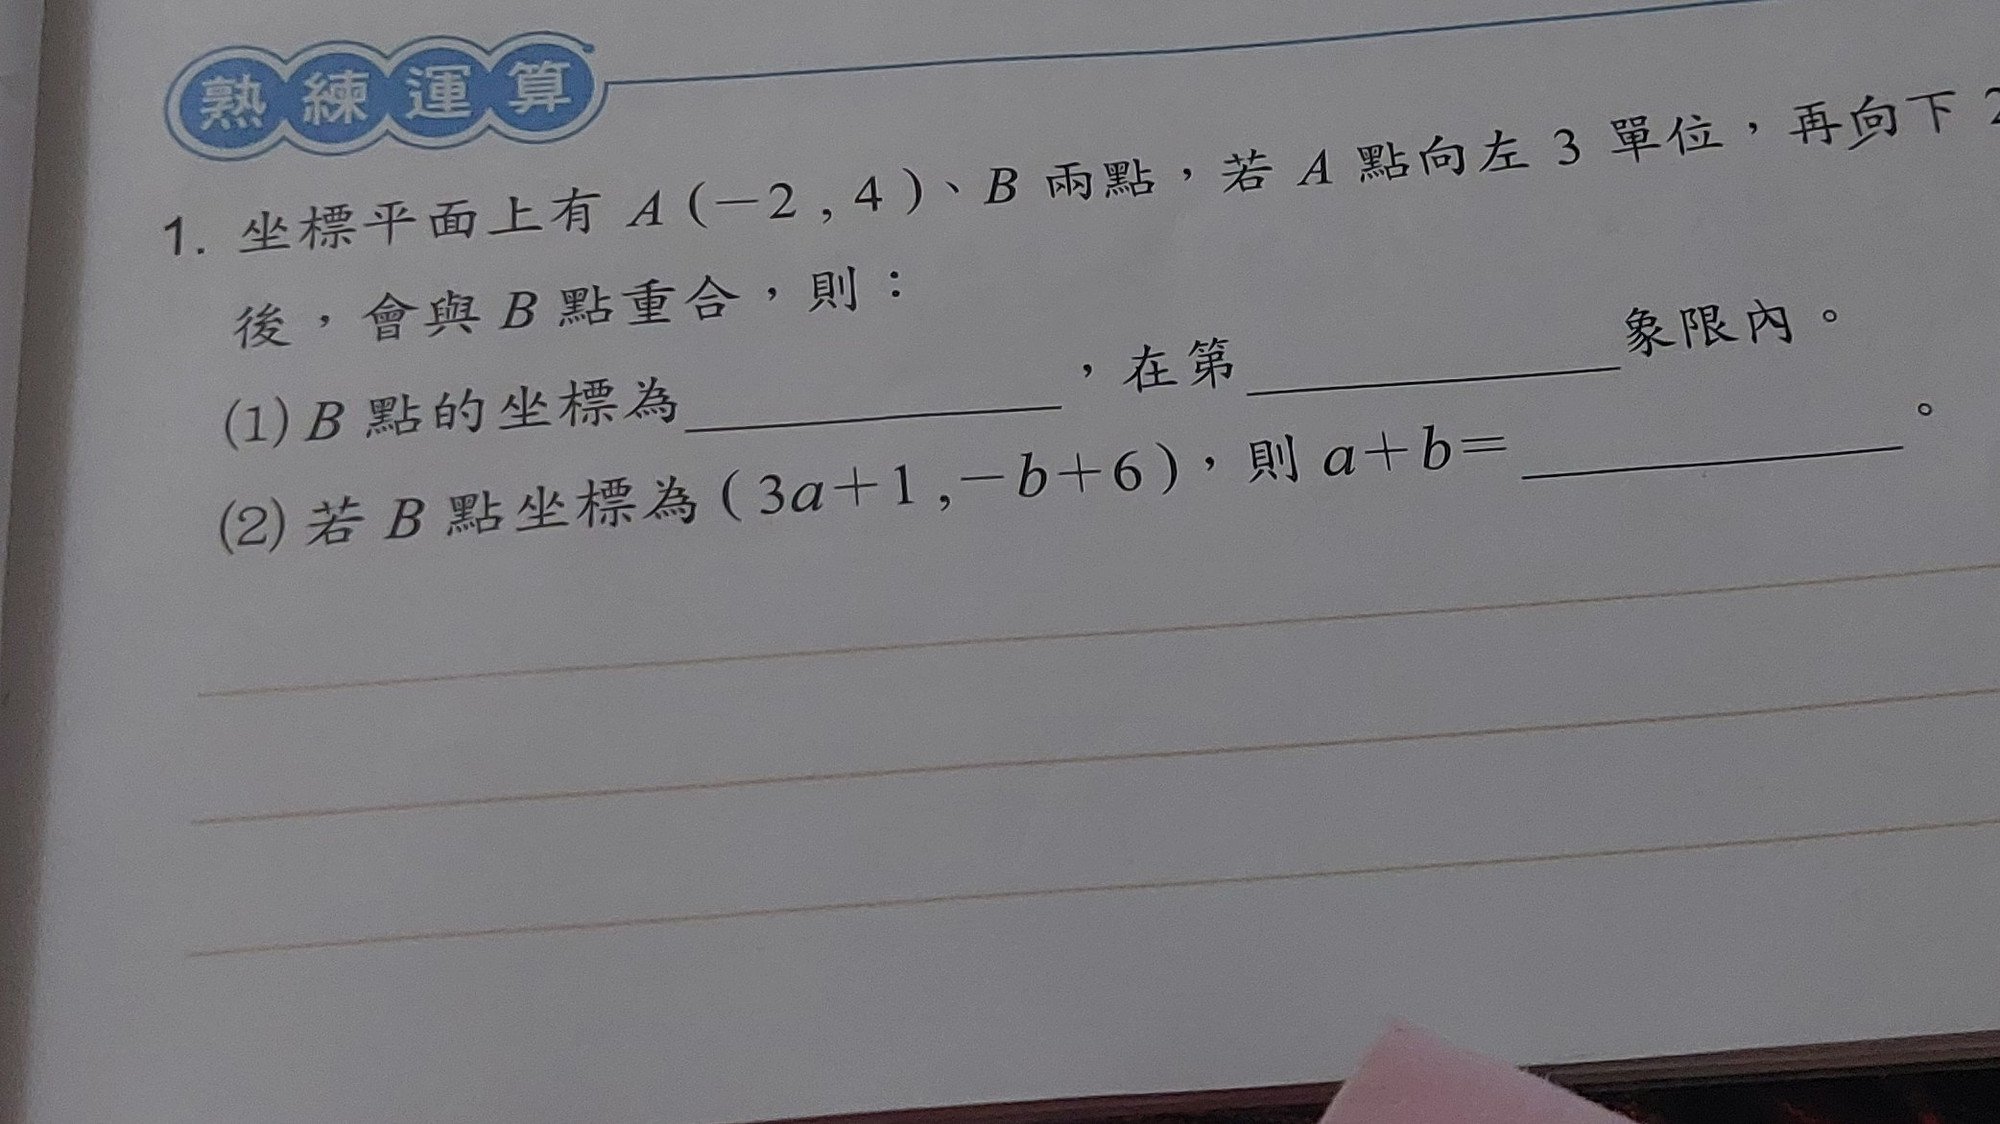 熟練運算
1. 坐標平面上有 A(－2 , 4)、B 兩點，若 A 點向左 3 單位，再向下 2
後，會與 B 點重合，則：
(1) B 點的坐標為＿＿＿＿＿＿，在第＿＿＿＿＿＿象限內。
(2) 若 B 點坐標為(3a＋1 ,－b＋6)，則 a＋b＝＿＿＿＿＿＿。